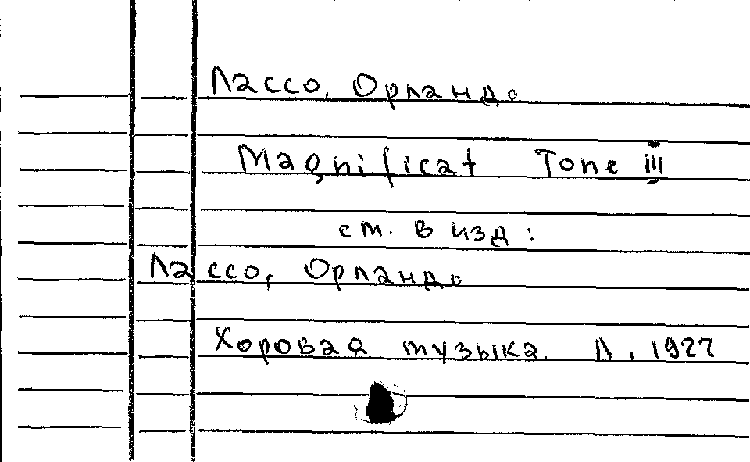 Лассо, Орландо
Magnificat Tone III
см. в изд:
Лассо, Орландо
Хоровая музыка. Л, 1977